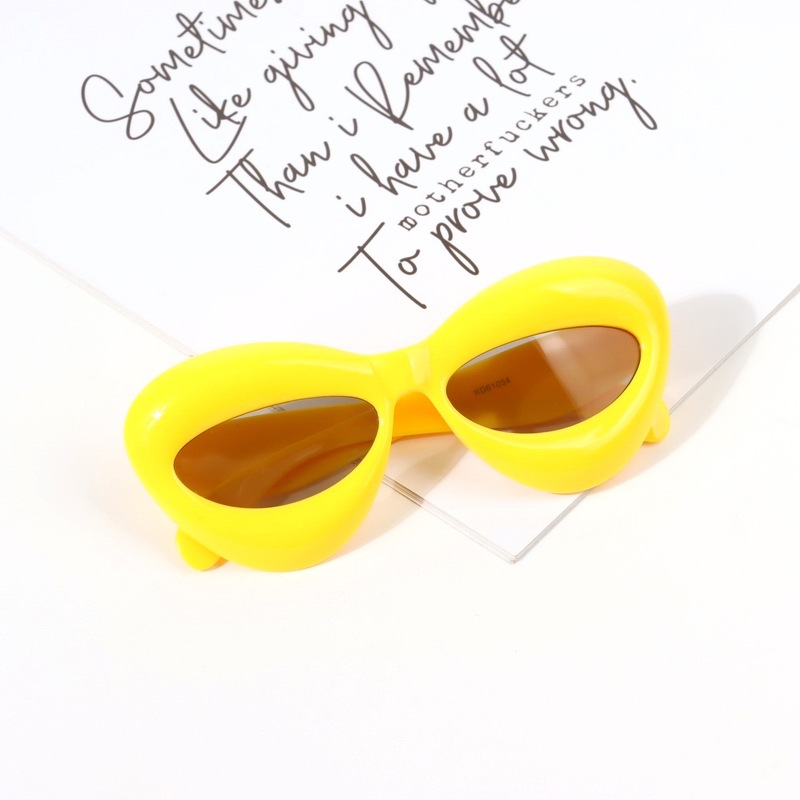 Sometimes
Like giving
Than i Remember
i have a lot
motherfuckers
To prove wrong.
XD61004